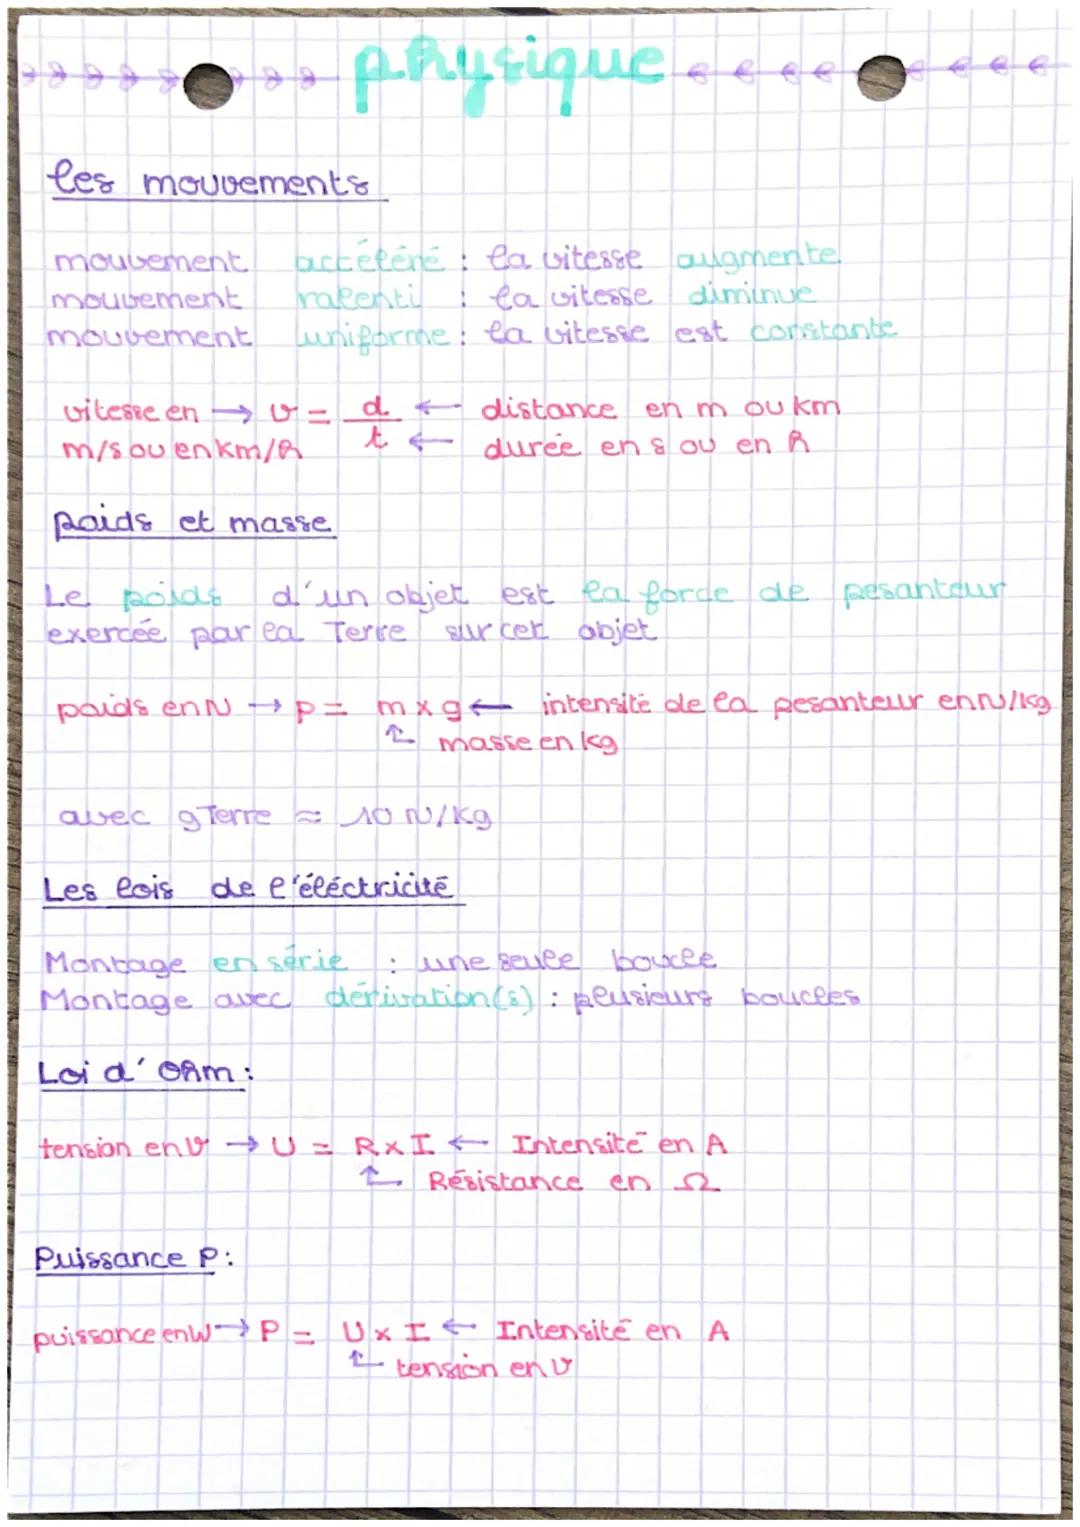 physique
les mouvements
mouvement accéléré : la vitesse augmente
mouvement ralenti : la vitesse diminue
mouvement uniforme : la vitesse est constante
vitesse en → v = d ← distance en m ou km
m/s ou en km/h t ← durée en s ou en h
poids et masse
Le poids d'un objet est la force de pesanteur
exercée par la Terre sur cet objet
poids en N → P = m x g ← intensité de la pesanteur en N/kg
↑ masse en kg
avec g Terre ≈ 10 N/kg
Les lois de l'éléctricité
Montage en série : une seule boucle
Montage avec dérivation(s) : plusieurs boucles
Loi d'Ohm :
tension en V → U = R x I ← Intensité en A
↑ Résistance en Ω
Puissance P :
puissance en W → P = U x I ← Intensité en A
↑ tension en V